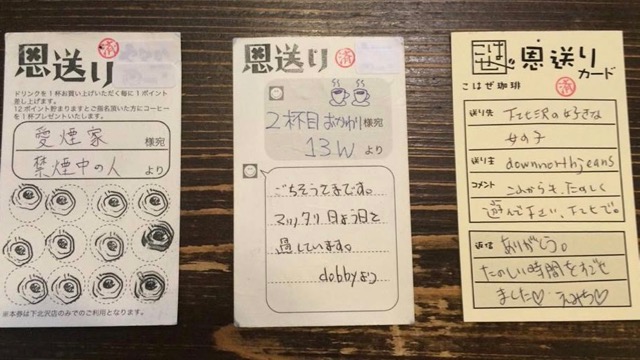 恩送り
済
ドリンクを1杯お買い上げいただく毎に1ポイント
差し上げます。
12ポイント貯まりますとご指名頂いた方にコーヒー
を1杯プレゼントいたします。
愛煙家 様宛
禁煙中の人 より
※本券は下北沢店のみでのご利用となります。
恩送り
済
2杯目おかわり 様宛
13.W より
ごちそうさまです。
マッタリ日よう日を
過しています。
dobbyより
こはぜ
恩送り
カード
こはぜ珈琲
済
送り先 下北沢の好きな
女の子
送り主 downnorthjeans
コメント これからも、たのしく
遊んで下さい、下北で。
返信 ありがとう。
たのしい時間をすごせ
ました♡ えみち♡